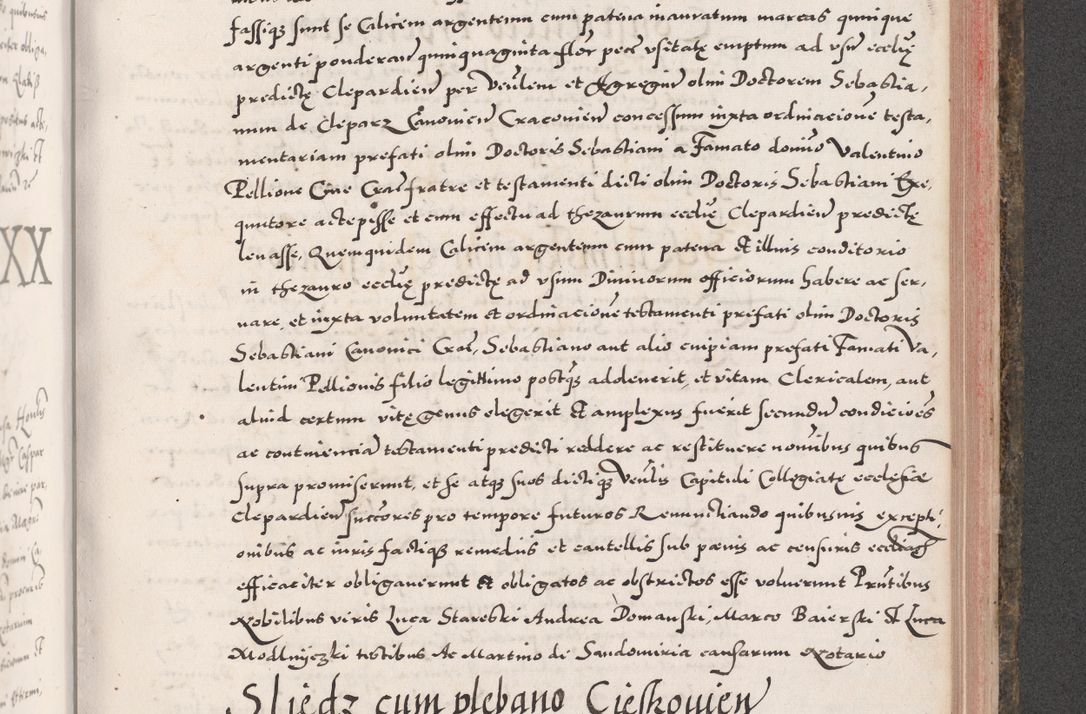 fassiqz sunt se Calicem argenteum cum patena inauratum marcas quinque
argenti ponderan quinquaginta flor pecc vsitatę emptum ad vsu ecclię
predictę Clepardien per Venlem et Egregiu olim Doctorem Sebastia,
num de Cleparz Canonicu Cracovien concessum iuxta ordinacione testa,
mentariam prefati olim Doctoris Sebastiani a Famato domino Valentino
Pellione Ciue Crac fratre et testamenti dicti olim Doctoris Sebastiani Exe,
quutore accepisse et cum effectu ad thezaurum ecclię Clepardien predictę
leuasse, Quemquidem Calicem argenteum cum patena Et illius conditorio
in thezauro ecclię predictę ad vsum Diuinorum officiorum habere ac ser,
uare, et iuxta voluntatem et ordinacione testamenti prefati olim Doctoris
Sebastiani Canonici Crac, Sebastiano aut alio cuipiam prefati Famati Va,
lentini Pellionis filio legittimo postqz adoleuerit, et vitam Clericalem, aut
aliud certum vitę genus elegerit Et amplexus fuerit secundu condicioes
ac continencia testamenti predicti reddere ac restituere nominibus quibus
supra promiserunt, et se atqz suos dictiqz Venlis Capituli Collegiatę ecclesiæ
Clepardien succores pro tempore futuros Renunctiando quibusuis excepti,
onibus ac iuris factiqz remediis et cautellis sub pœnis ac censuris ecclicis
efficaciter obligauerunt Et obligatos ac obstrictos esse voluerunt Prntibus
Nobilibus viris Luca Starebski Andrea Domanski, Marco Baierski Et Luca
Modlnijczki testibus Ac Martino de Sandomiria causarum Notario
Sliedz cum plebano Cieskouien